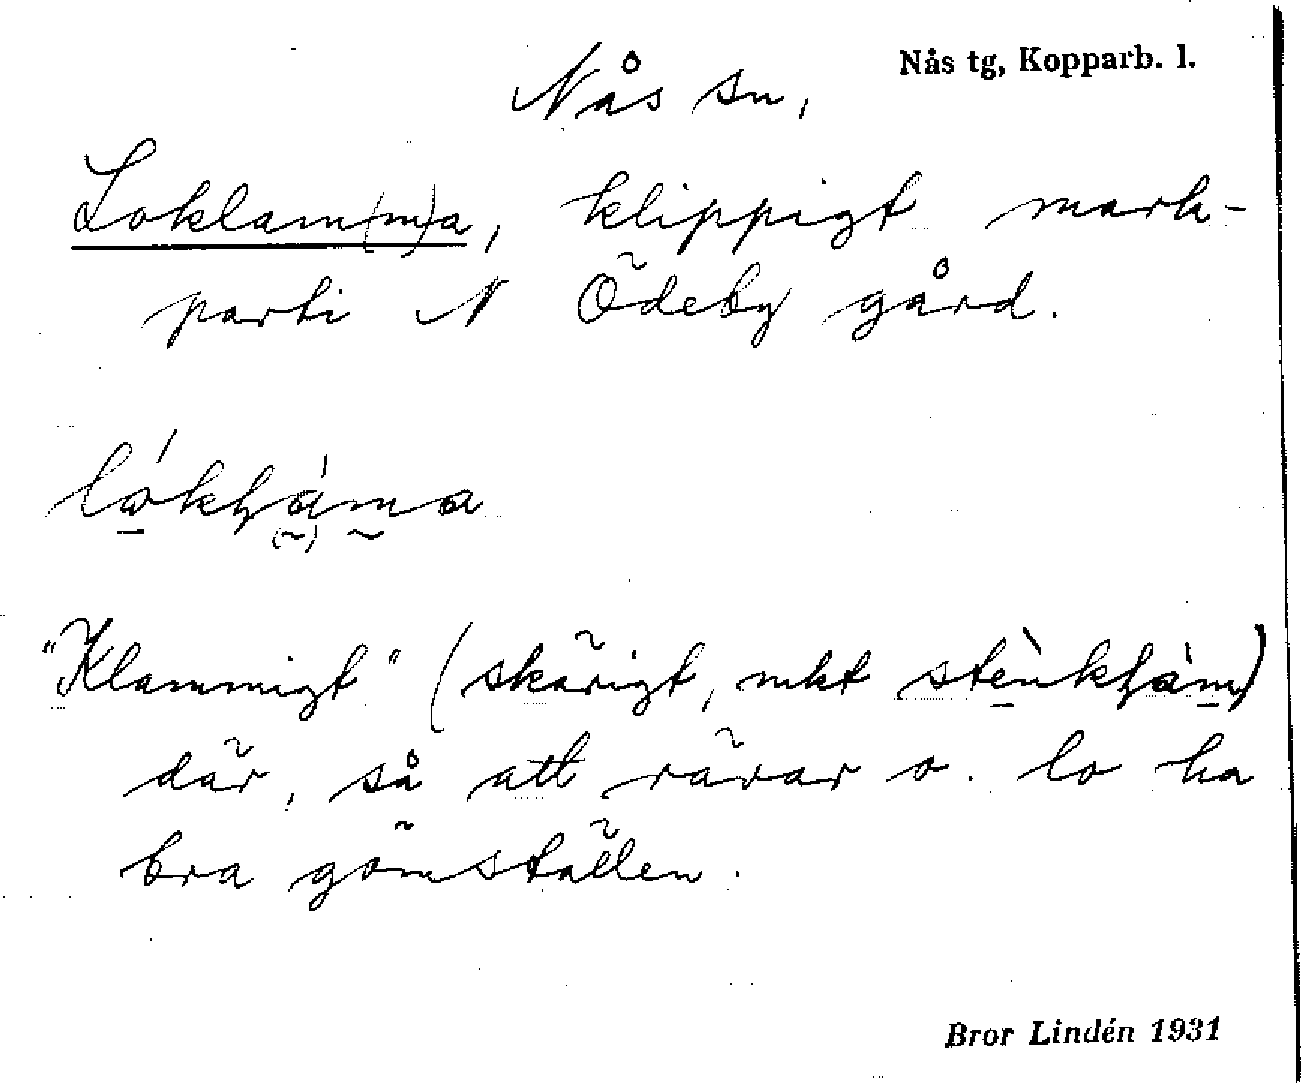 Nås tg, Kopparb. l.
Nås sn,
Loklam(m)a, klippigt mark-
parti N Ödeby gård.
"Klammigt" (skärigt, mkt
där, så att rävar o. lo ha
bra gömställen.
Bror Lindén 1931